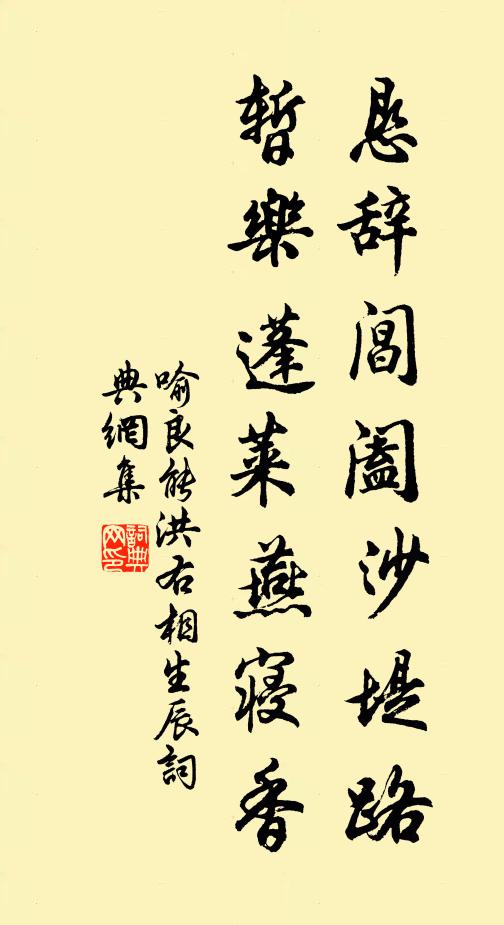 恳辞阊阖沙堤路
暂樂蓬莱燕寝香
喻良能洪右相生辰詞
典網集
詞典
网印